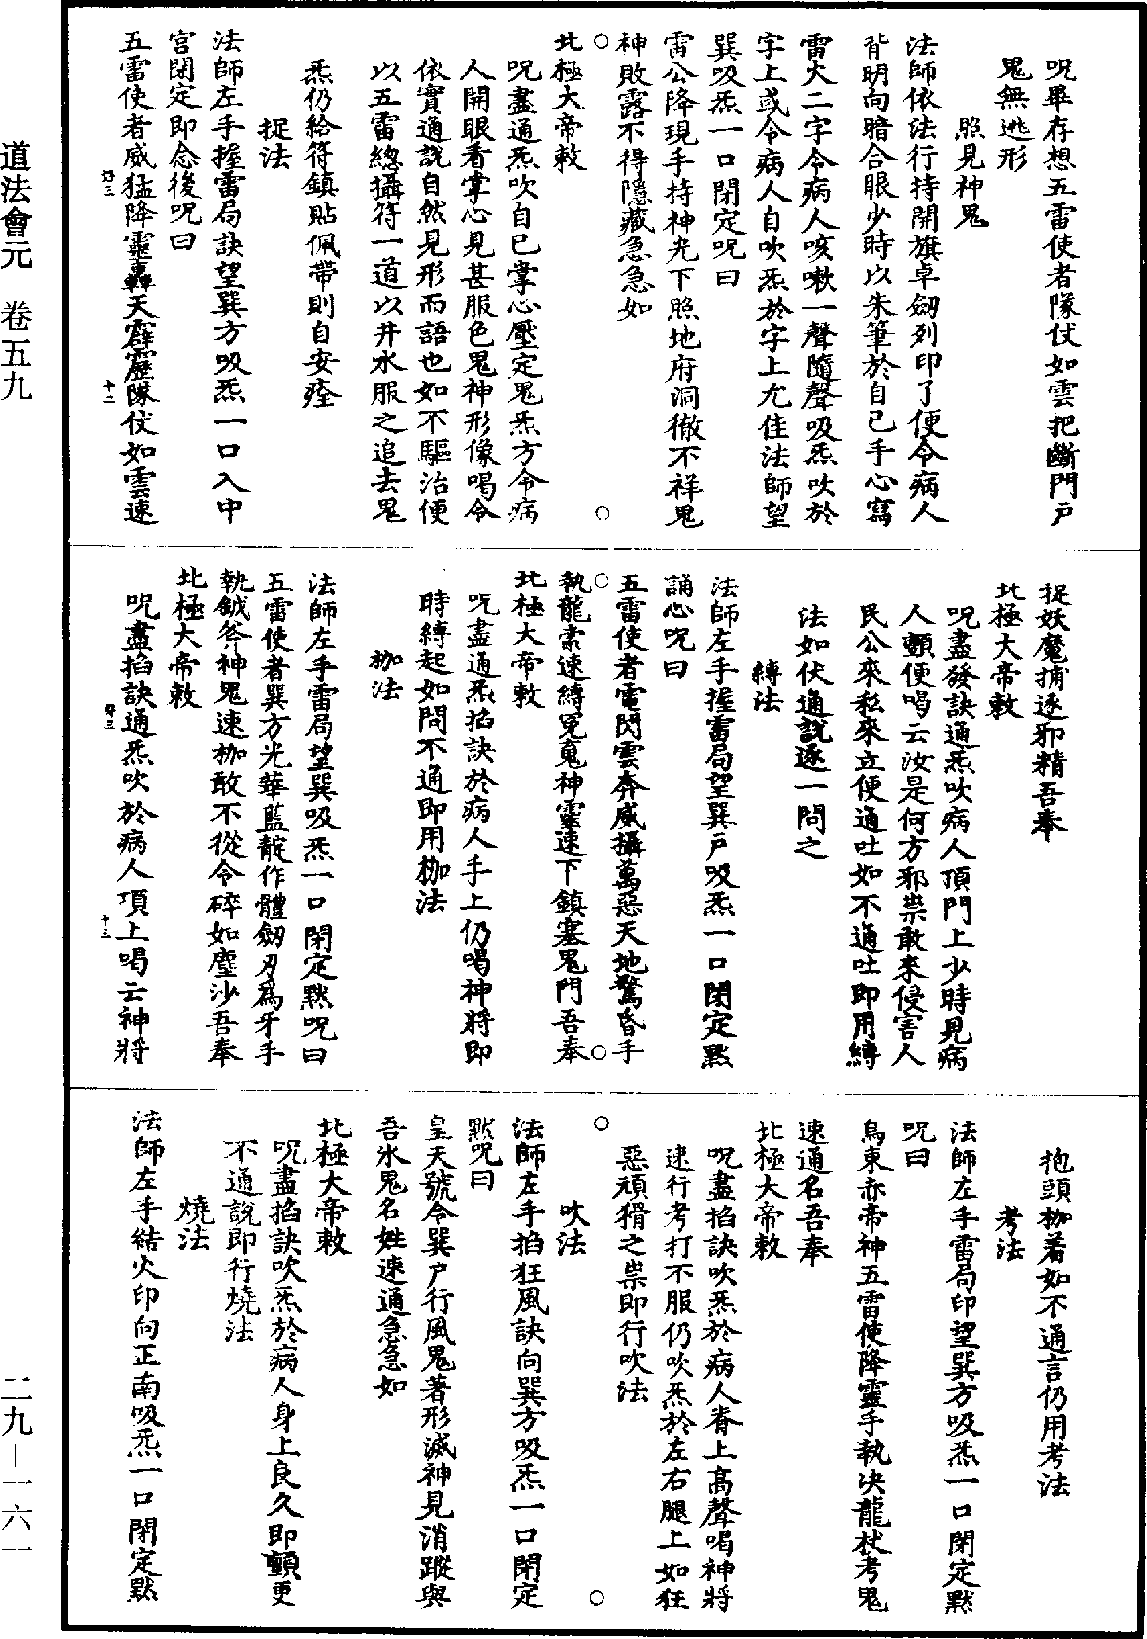 呪畢存想五雷使者隊仗如雲把斷門戶
鬼無逃形
照見神鬼
法師依法行持開旗卓劒列印了便令病人
背明向暗合眼少時以朱筆於自己手心寫
雷火二字令病人咳嗽一聲隨聲吸炁吹於
字上或令病人自吹炁於字上尤佳法師望
巽吸炁一口閉定呪曰
雷公降現手持神光下照地府洞徹不祥鬼
神敗露不得隱藏急急如
北極大帝敕
呪盡通炁吹自己掌心壓定鬼炁方令病
人開眼看掌心見甚服色鬼神形像喝令
依實通說自然見形而語也如不驅治便
以五雷總攝符一道以井水服之追去鬼
炁仍給符鎮貼佩帶則自安痊
捉法
法師左手握雷局訣望巽方吸炁一口入中
宮閉定即念後呪曰
五雷使者威猛降靈轟天霹靂隊仗如雲速
捉妖魔捕逐邪精吾奉
北極大帝敕
呪盡發訣通炁吹病人頂門上少時見病
人顫便唱云汝是何方邪祟敢來侵害人
民公來私來立便通吐如不通吐即用縛
法如伏通說逐一問之
縛法
法師左手握雷局望巽戶吸炁一口閉定黙
誦心呪曰
五雷使者電閃雲奔威攝萬惡天地驚昏手
執龍索速縛冤䰟神靈速下鎮塞鬼門吾奉
北極大帝敕
呪盡通炁掐訣於病人手上仍喝神將即
時縛起如問不通即用枷法
枷法
法師左手雷局望巽吸炁一口閉定黙呪曰
五雷使者巽方光華藍靛作體劒刃為牙手
執鉞斧神鬼速枷敢不從令碎如塵沙吾奉
北極大帝敕
呪盡掐訣通炁吹於病人項上喝云神將
抱頭枷着如不通言仍用考法
考法
法師左手雷局印望巽方吸炁一口閉定黙
呪曰
烏東赤帝神五雷使降靈手執決龍杖考鬼
速通名吾奉
北極大帝敕
呪盡掐訣吹炁於病人脊上高聲喝神將
速行考打不服仍吹炁於左右腿上如狂
惡頑猾之祟即行吹法
吹法
法師左手掐狂風訣向巽方吸炁一口閉定
黙呪曰
皇天號令巽戶行風鬼著形滅神見消蹤與
吾氷鬼名姓速通急急如
北極大帝敕
呪盡掐訣吹炁於病人身上良久即顫更
不通說即行燒法
燒法
法師左手結火印向正南吸炁一口閉定黙
道法會元 卷五九
二九—一六一